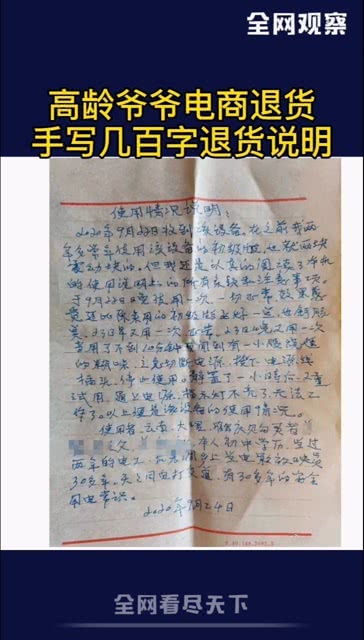 全网观察
高龄爷爷电商退货
手写几百字退货说明
使用情况说明：
2020年9月22日收到该设备。在之前我两
年多常年使用该设备的初级版也就两块
震动块的。但我还是认真的阅读了手机
的使用说明书的所有条款和注意事项。
于9月22日晚使用一次。一切正常效果感
觉还比原来用的初级版更好一点，也舒服点
意。23日早又用一次正常。23日晚又用一次
当用了不到20分钟时闻到有一小股烧焦
的糊味，立克切断电源，按下电源线
插头，停止使用。静置了一小时后，又重
试用，通上电源，指示灯不亮了，无法工
作了。以上便是该设备的使用情况。
使用者：云南，大理
本人初中学历，当过
两年的电工
30多年。天天同电打交道，有30多年的安全
用电常识。
2020年9月24日
全网看尽天下